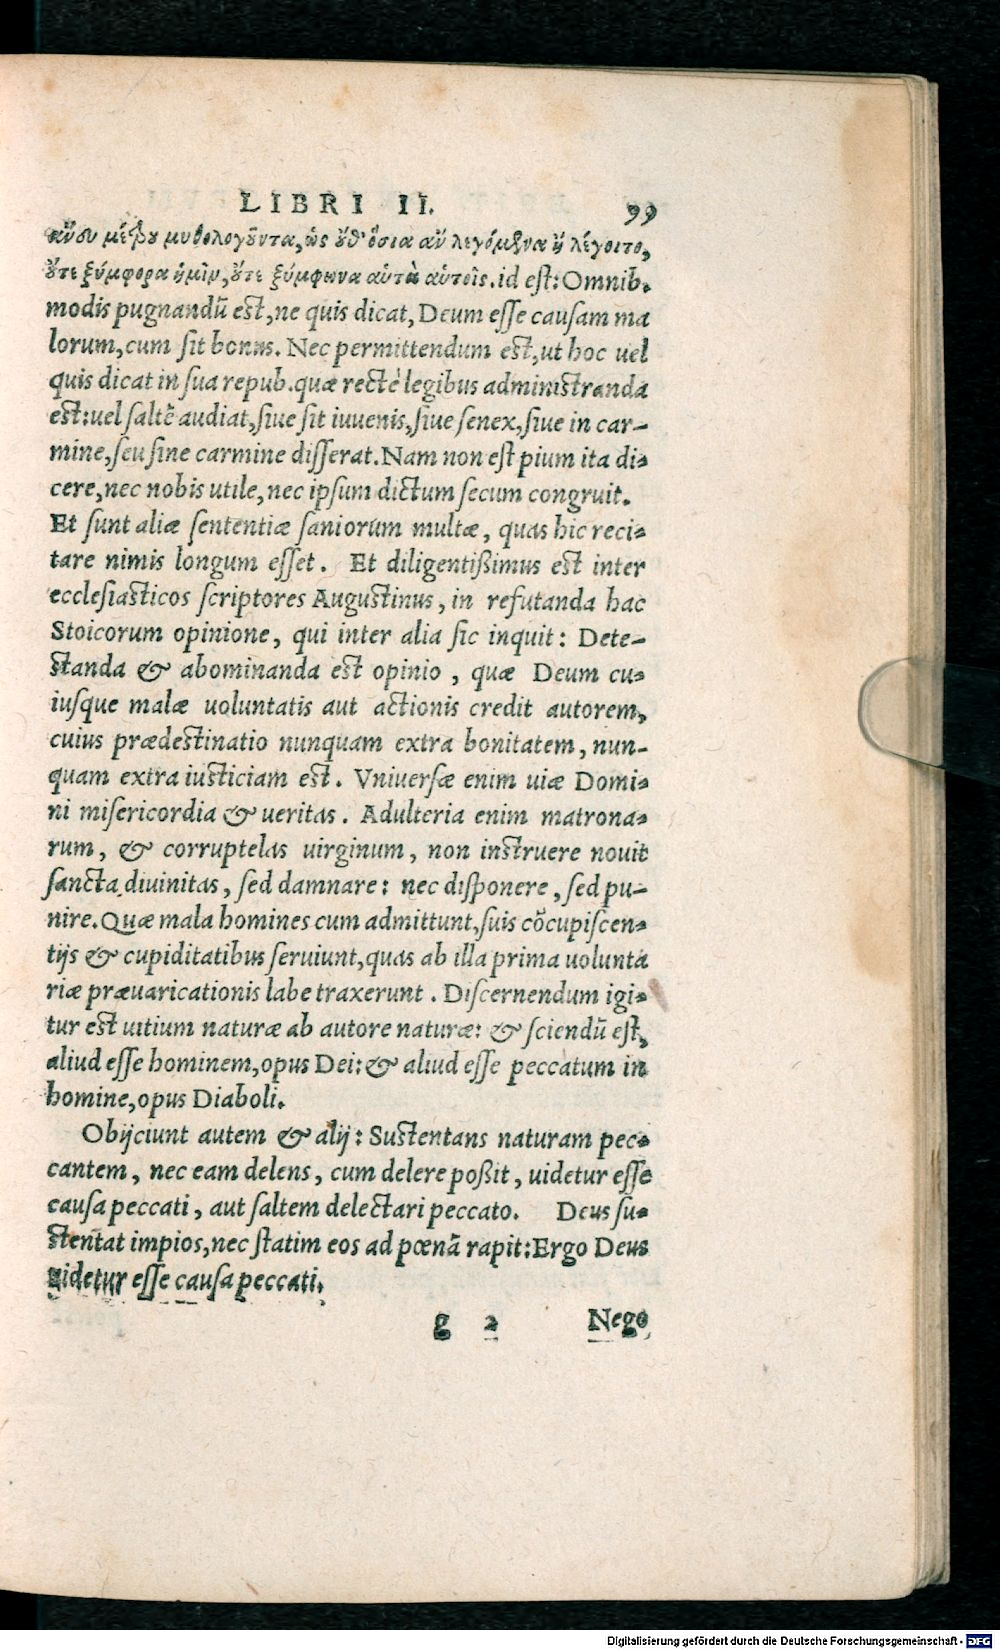 LIBRI II. 99
ἄνευ μέτρου μυθολογοῦντα, ὡς οὔθ' ὅσια ἂν λεγόμενα ἢ λέγοιτο,
οὔτε ξύμφορα ἡμῖν, οὔτε ξύμφωνα αὐτὰ αὑτοῖς. id est: Omnib.
modis pugnandū est, ne quis dicat, Deum esse causam ma
lorum, cum sit bonus. Nec permittendum est, ut hoc uel
quis dicat in sua repub. quæ rectè legibus administranda
est: uel saltē audiat, siue sit iuuenis, siue senex, siue in car-
mine, seu sine carmine disserat. Nam non est pium ita di-
cere, nec nobis utile, nec ipsum dictum secum congruit.
Et sunt aliæ sententiæ saniorum multæ, quas hic reci-
tare nimis longum esset. Et diligentißimus est inter
ecclesiasticos scriptores Augustinus, in refutanda hac
Stoicorum opinione, qui inter alia sic inquit: Dete-
standa & abominanda est opinio, quæ Deum cu-
iusque malæ uoluntatis aut actionis credit autorem,
cuius prædestinatio nunquam extra bonitatem, nun-
quam extra iusticiam est. Vniuersæ enim uiæ Domi-
ni misericordia & ueritas. Adulteria enim matrona-
rum, & corruptelas uirginum, non instruere nouit
sancta diuinitas, sed damnare: nec disponere, sed pu-
nire. Quæ mala homines cum admittunt, suis cōcupiscen-
tijs & cupiditatibus seruiunt, quas ab illa prima uolunta
riæ præuaricationis labe traxerunt. Discernendum igi-
tur est uitium naturæ ab autore naturæ: & sciendū est,
aliud esse hominem, opus Dei: & aliud esse peccatum in
homine, opus Diaboli.
Obijciunt autem & alij: Sustentans naturam pec-
cantem, nec eam delens, cum delere poßit, uidetur esse
causa peccati, aut saltem delectari peccato. Deus su-
stentat impios, nec statim eos ad pœnā rapit: Ergo Deus
uidetur esse causa peccati.
g 2 Nego
Digitalisierung gefördert durch die Deutsche Forschungsgemeinschaft - DFG